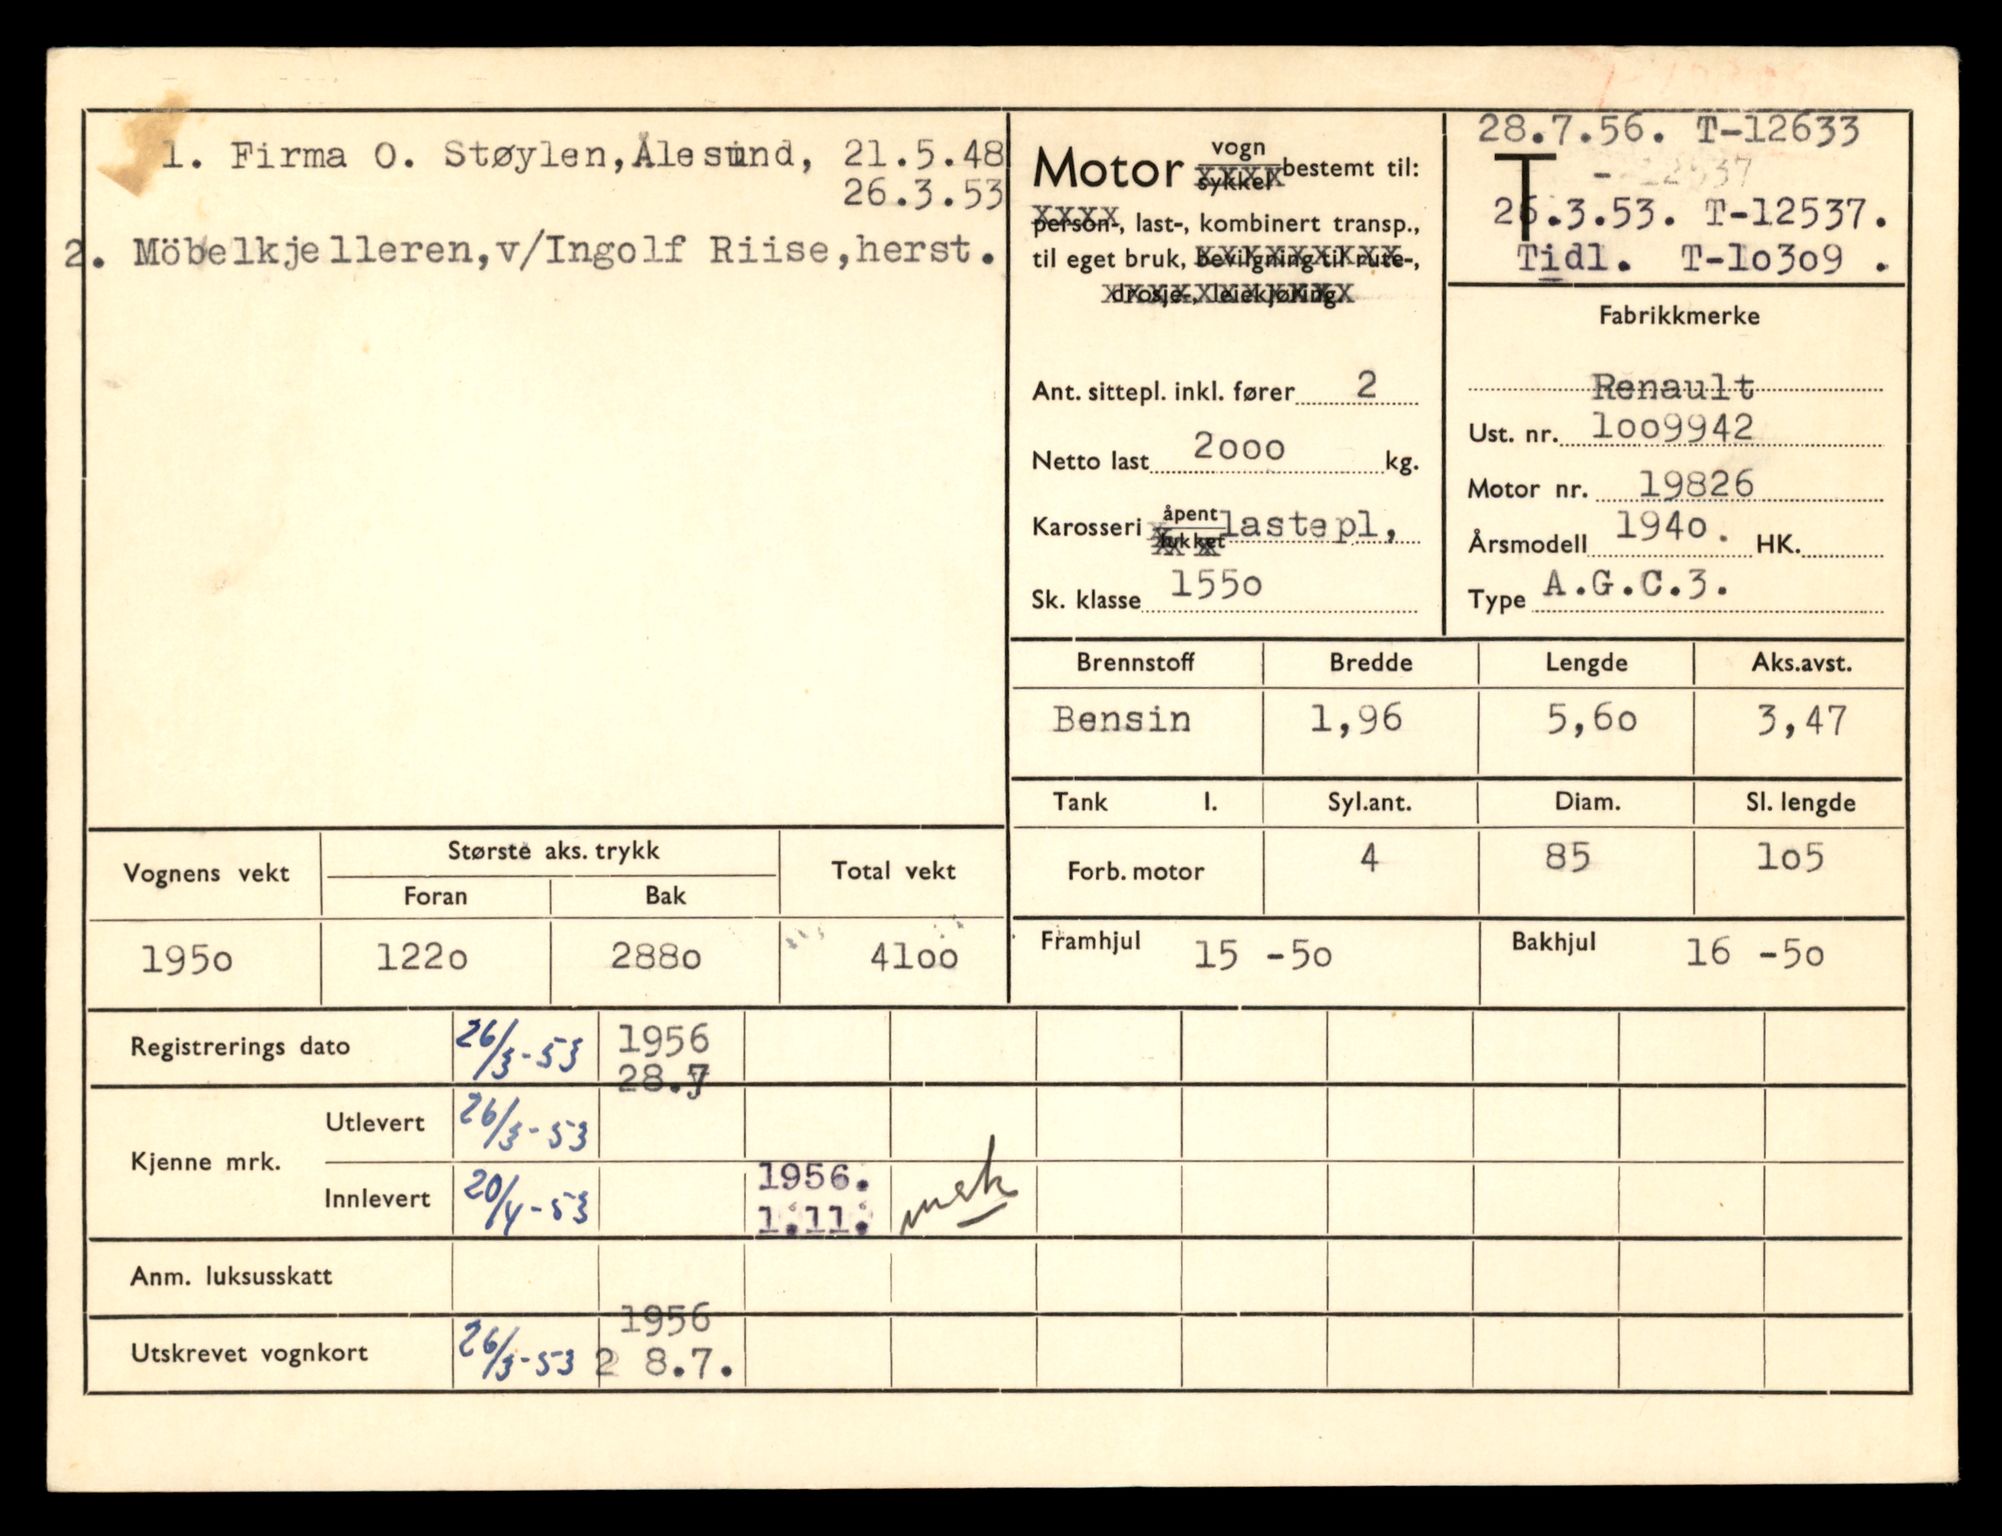 1. Firma O. Støylen, Ålesund, 21.5.48
26.3.53
2. Möbelkjelleren, v/Ingolf Riise, herst.
Motor vogn sykkel bestemt til:
person-, last-, kombinert transp.,
til eget bruk, bevilgning til rute-,
drosje-, leiekjøring.
Ant. sittepl. inkl. fører 2
Netto last 2ooo kg.
Karosseri åpent lukket lastepl,
Sk. klasse 155o
28.7.56. T-12633
T - 12537
26.3.53. T-12537.
Tidl. T-1o3o9 .
Fabrikkmerke
Renault
Ust. nr. 1oo9942
Motor nr. 19826
Årsmodell 194o. HK.
Type A.G.C.3.
Brennstoff Bredde Lengde Aks.avst.
Bensin 1,96 5,6o 3,47
Tank l. Syl.ant. Diam. Sl. lengde
Forb. motor 4 85 1o5
Framhjul 15 -5o Bakhjul 16 -5o
Vognens vekt Største aks. trykk Total vekt
Foran Bak
195o 122o 288o 41oo
Registrerings dato 26/3-53 1956
28.7
Kjenne mrk. Utlevert 26/3-53
Innlevert 20/4-53 1956.
1.11. msk
Anm. luksusskatt
Utskrevet vognkort 26/3-53 1956
2 8.7.